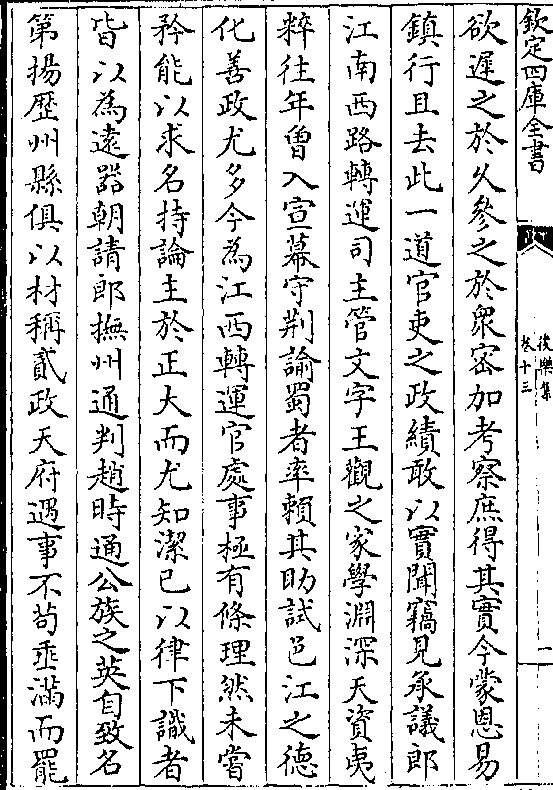 欽定四庫全書
後樂集
卷十三
一
欲遲之於久參之於衆密加考察庶得其實今蒙恩易
鎮行且去此一道官吏之政績敢以實聞竊見承議郎
江南西路轉運司主管文字王觀之家學淵深天資夷
粹往年曾入宣幕守荆諭蜀者率賴其助試邑江之德
化善政尤多今為江西轉運官處事極有條理然未嘗
矜能以求名持論主於正大而尤知潔已以律下識者
皆以為遠器朝請郎撫州通判趙時通公族之英自致名
第揚歴州縣俱以材稱貳政天府遇事不苟垂滿而罷